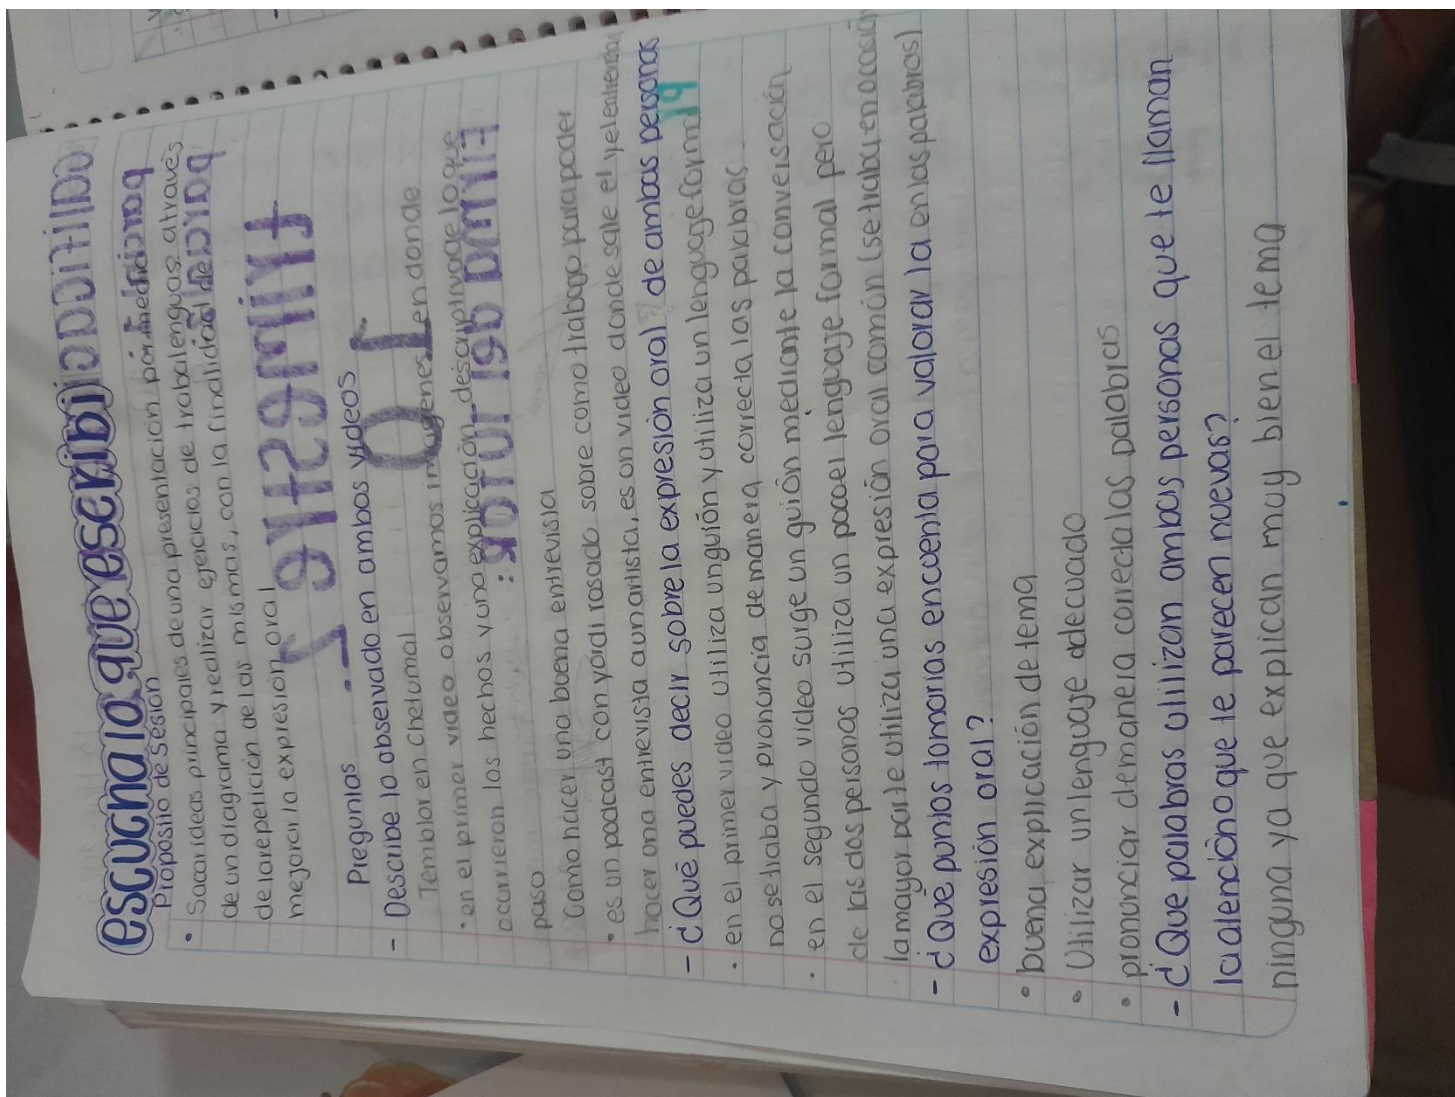 escucha lo que escribi
Proposito de sesión
• Sacar ideas principales de una presentación por medio
de un diagrama y realizar ejercicios de trabalenguas através
de la repetición de las mismas, con la finalidad de
mejorar la expresión oral
Preguntas
- Describe lo observado en ambos videos
Temblor en chetumal
• en el primer video observamos imagenes en donde
ocurrieron los hechos y una explicación descriptiva de lo que
paso
Como hacer una buena entrevista
• es un podcast con yordi rosado sobre como trabajo para poder
hacer una entrevista a un artista, es un video donde sale el y el
- ¿Qué puedes decir sobre la expresión oral de ambas personas
• en el primer video utiliza un guión y utiliza un lenguaje formal
no se traba y pronuncia de manera correcta las palabras
• en el segundo video surge un guión mediante la conversación
de las dos personas utiliza un poco el lenguaje formal pero
la mayor parte utiliza una expresión oral común (se traba en ocación en las palabras)
- ¿Que puntos tomarias encuenta para valorar la
expresión oral?
• buena explicación de tema
• Utilizar un lenguaje adecuado
• pronunciar de manera correcta las palabras
- ¿Que palabras utilizan ambas personas que te llaman
la atención o que te parecen nuevas?
ninguna ya que explican muy bien el tema